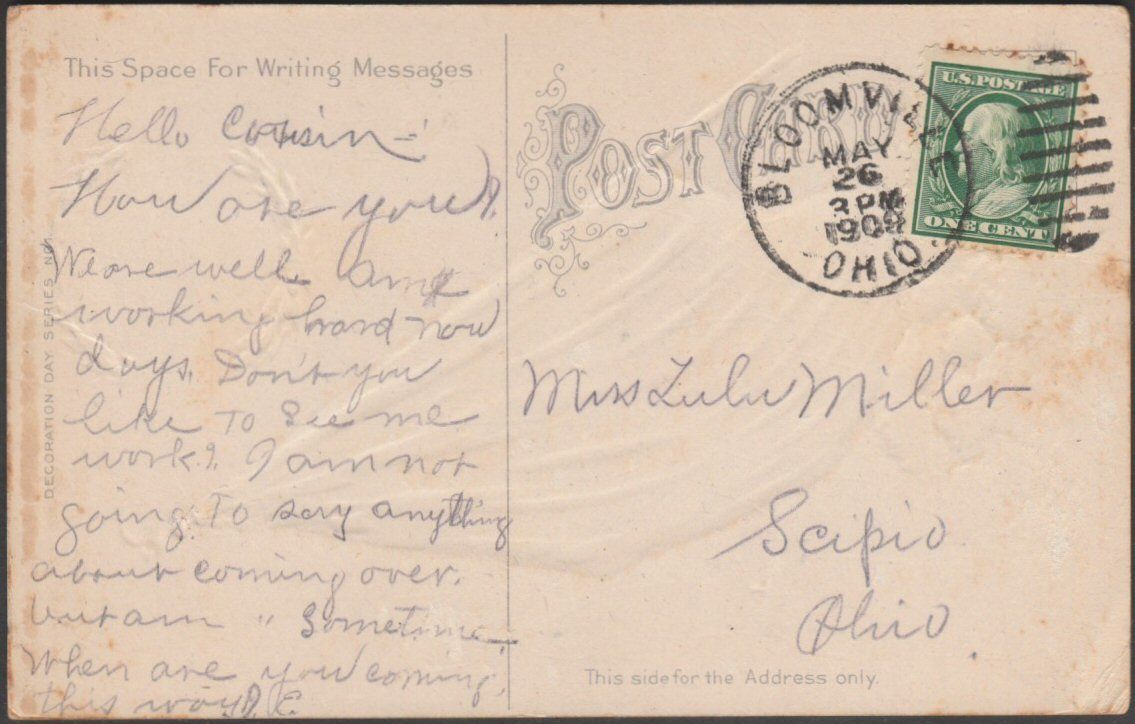 This Space For Writing Messages
Hello Cousin—
How are you?
We are well. Am
working hard now
days. Don't you
like to see me
work? I am not
going to say anything
about coming over.
but am " Sometime—
When are you coming
this way? E.
DECORATION DAY SERIES NO
POST CARD
BLOOMVILLE
MAY
26
3 PM
1909
OHIO
U.S. POSTAGE
ONE CENT
Miss Lulu Miller
Scipio
Ohio
This side for the Address only.